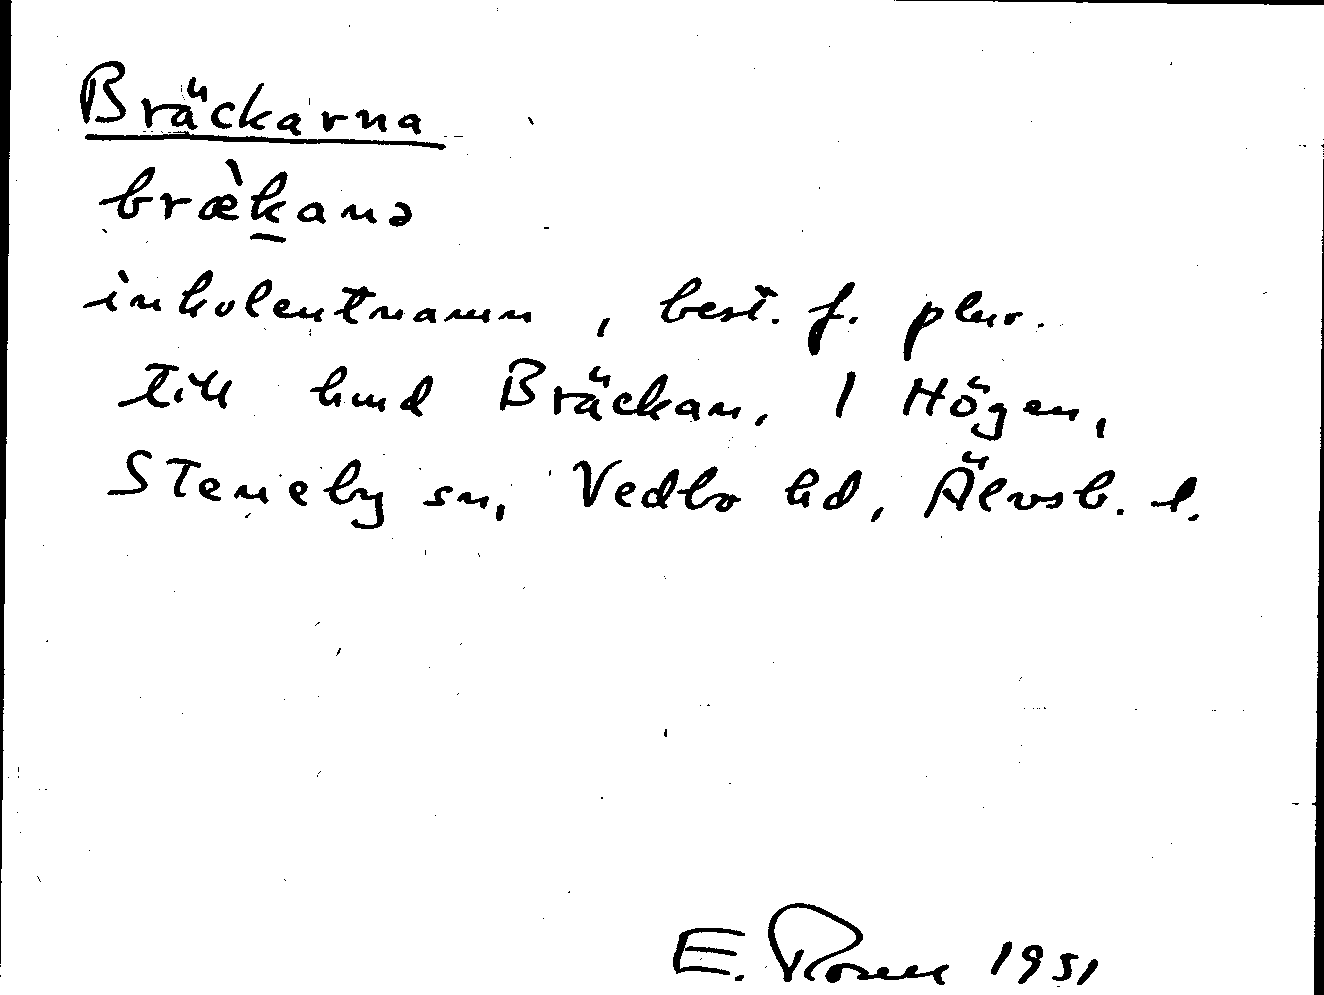 Bräckarna
bræ̀k̲anə
inkolentnamn, best. f. plur.
till hmd Bräckan, 1 Högen,
Steneby sn, Vedbo hd, Älvsb. l.
E. Rosell 1951